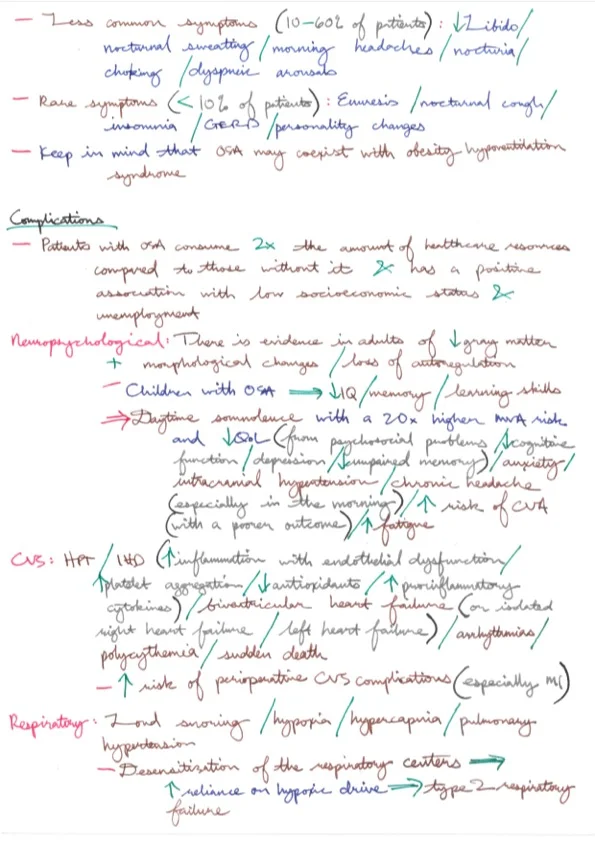 — Less common symptoms (10-60% of patients): ↓Libido/
nocturnal sweating/morning headaches/nocturia/
choking/dyspneic arousals
— Rare symptoms (<10% of patients): Enuresis/nocturnal cough/
insomnia/GERD/personality changes
— Keep in mind that OSA may coexist with obesity hypoventilation
syndrome
Complications
— Patients with OSA consume 2x the amount of healthcare resources
compared to those without it & has a positive
association with low socioeconomic status &
unemployment
Neuropsychological: There is evidence in adults of ↓gray matter
+ morphological changes/loss of autoregulation
— Children with OSA → ↓IQ/memory/learning skills
⇒ Daytime somnolence with a 20x higher MVA risk
and ↓QoL (from psychosocial problems/↓cognitive
function/depression/↓impaired memory)/anxiety/
intracranial hypertension/chronic headache
(especially in the morning)/↑ risk of CVA
(with a poorer outcome)/↑fatigue
CVS: HPT/IHD (↑inflammation with endothelial dysfunction/
↑platelet aggregation/↓antioxidants/↑proinflammatory
cytokines)/biventricular heart failure (or isolated
right heart failure/left heart failure)/arrhythmias/
polycythemia/sudden death
— ↑ risk of perioperative CVS complications (especially MI)
Respiratory: Loud snoring/hypoxia/hypercapnia/pulmonary
hypertension
— Desensitization of the respiratory centers →
↑ reliance on hypoxic drive → type 2 respiratory
failure